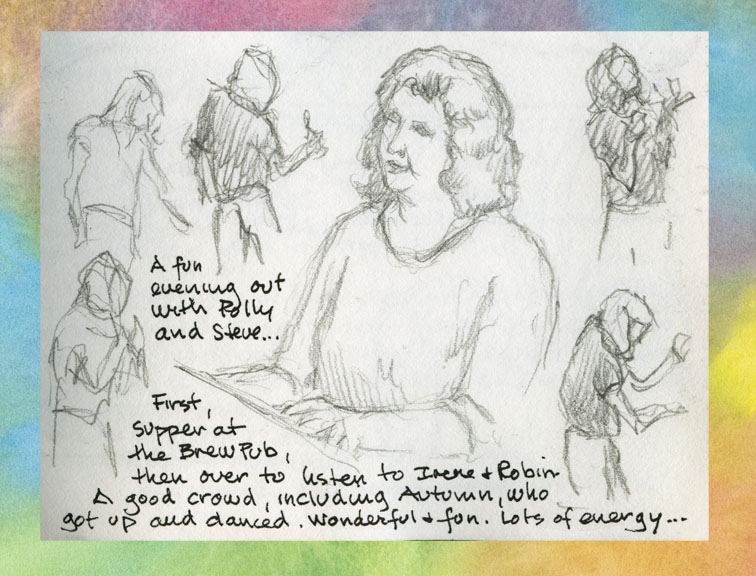 A fun
evening out
with Polly
and Steve...
First,
supper at
the BrewPub,
then over to listen to Irene + Robin
A good crowd, including Autumn, who
got up and danced. Wonderful + fun. Lots of energy...